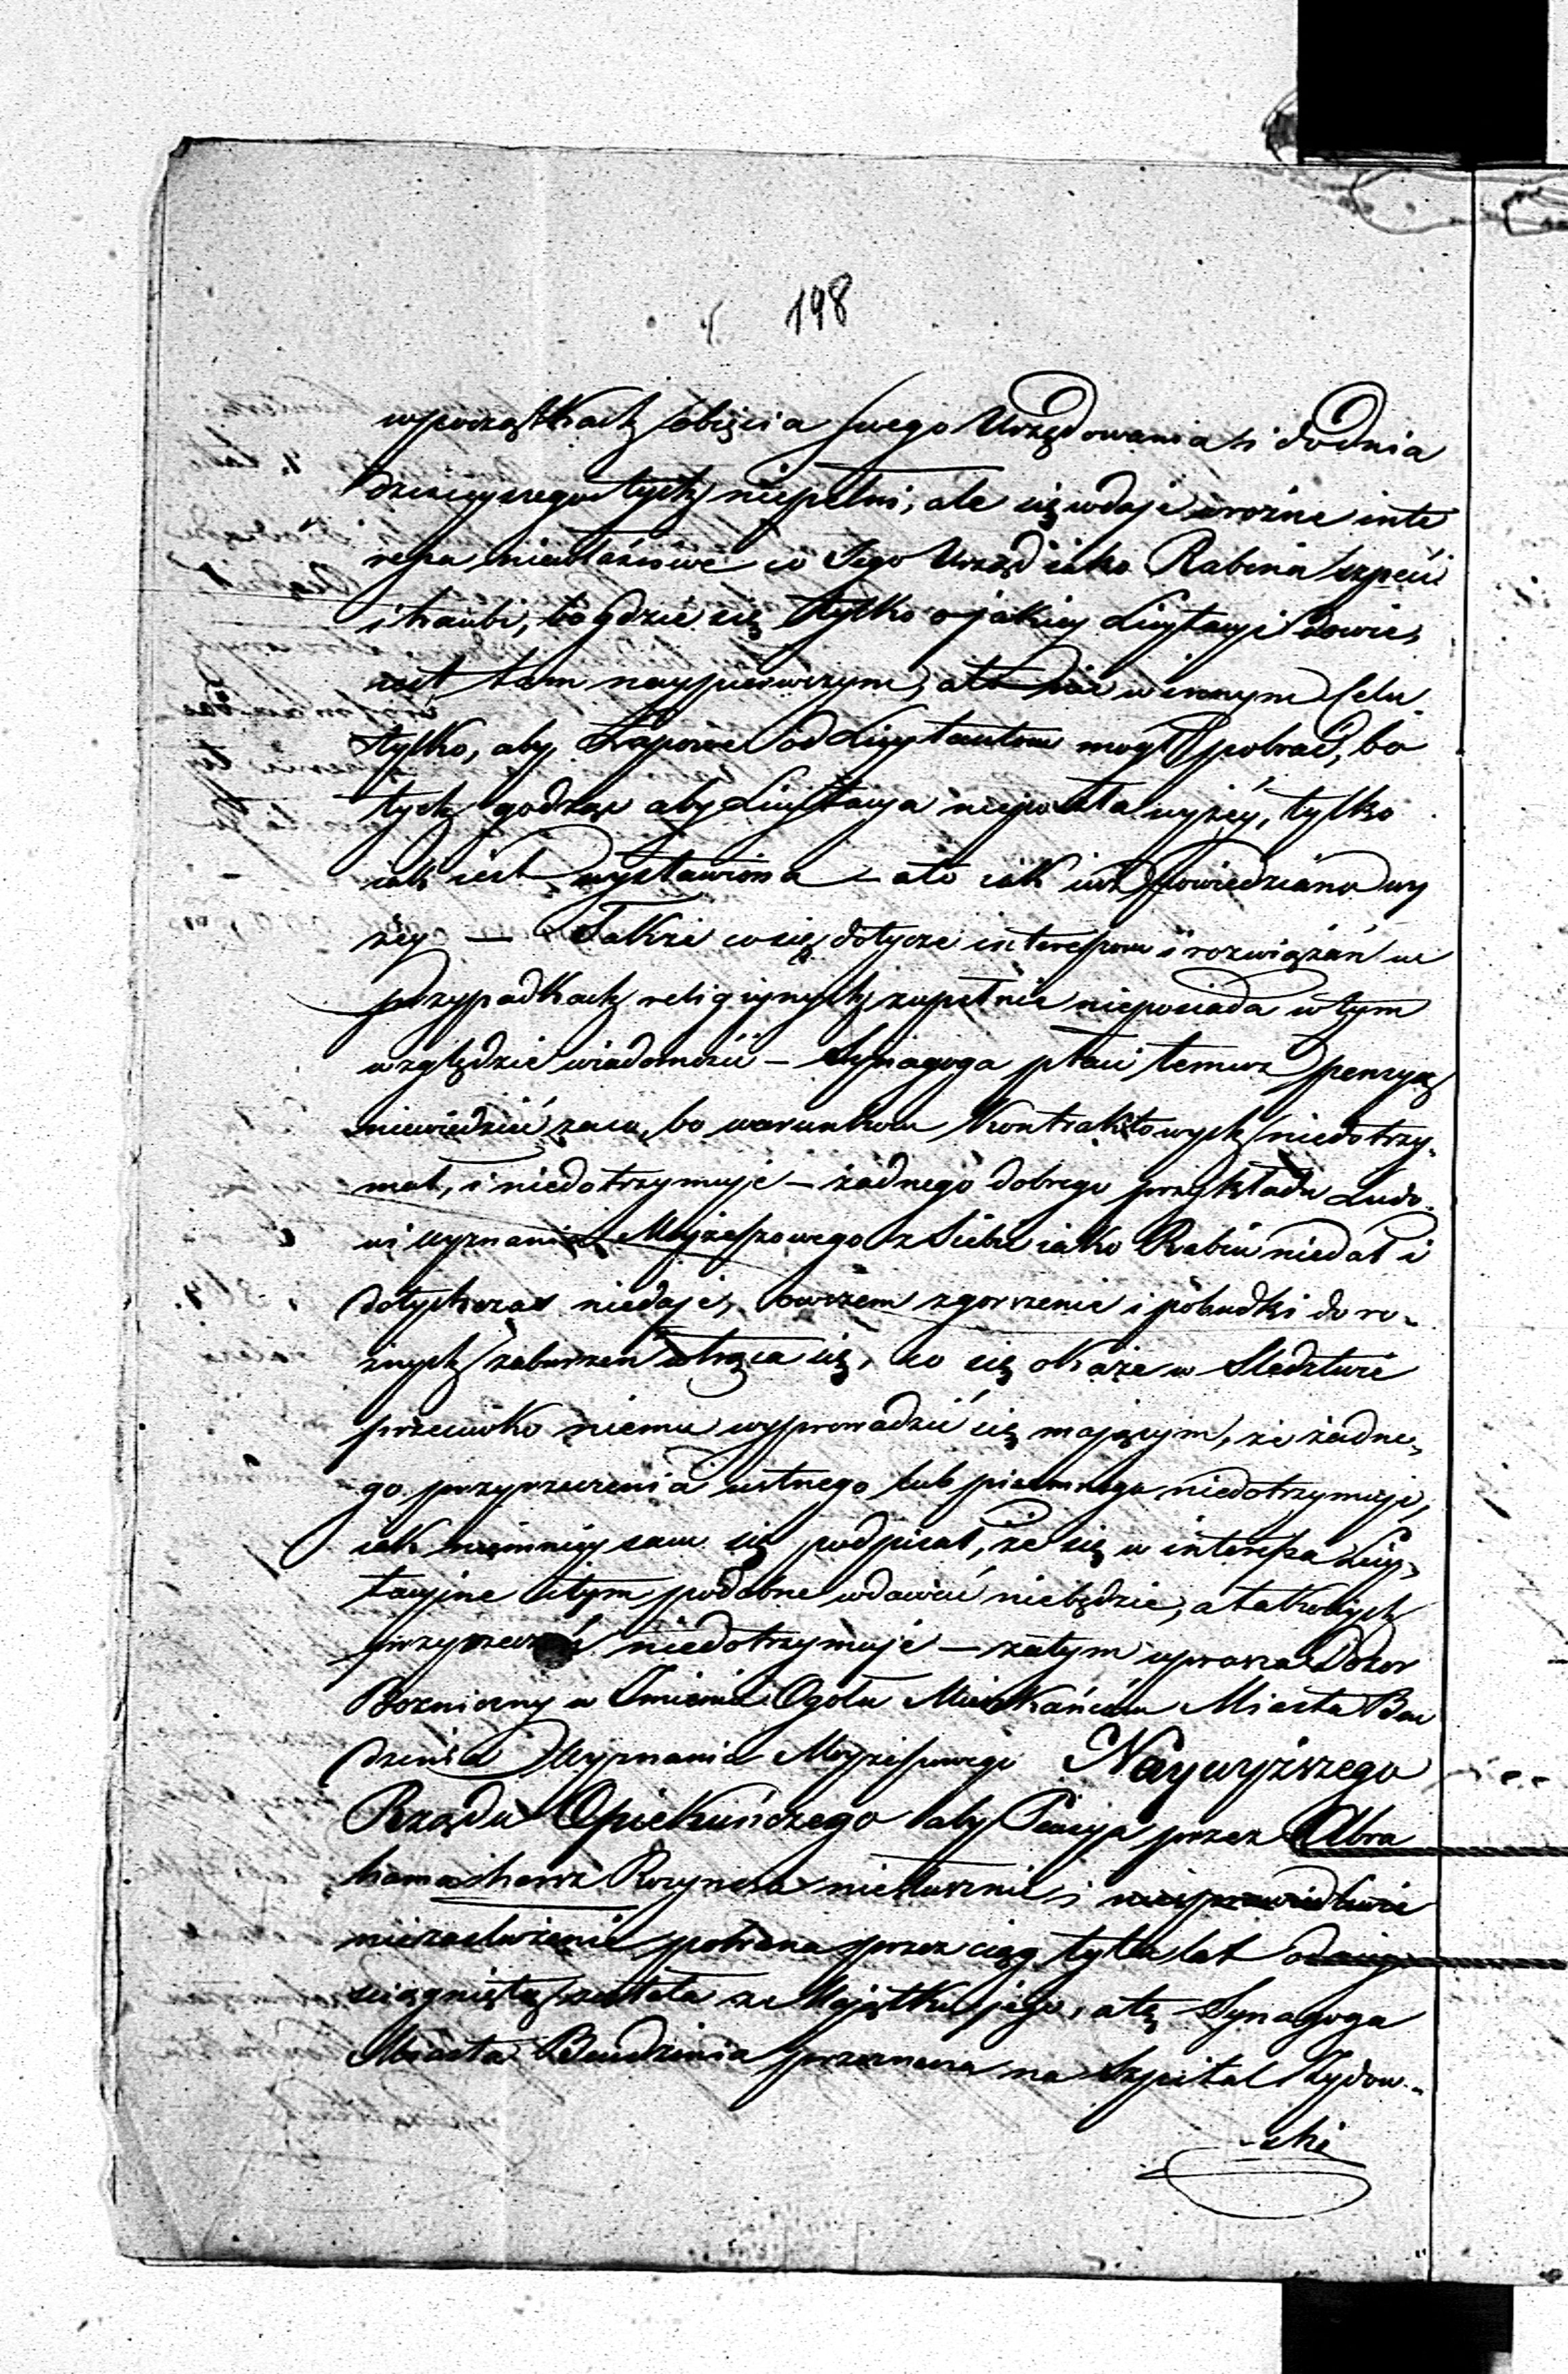 198
w początkach obięcia swego Urzędowania i do dnia
dzisieyszego tych niepełni, ale się wdaje w rożne inte
ressa niewłaściwe co Jego Urząd iako Rabina szpeci
i hańbi, bo gdzie się tylko o jakiey Licytacyi dowie,
iest tam naypierwszym, a to nie w innym Celu
tylko, aby Łapowe od Licytantow mogł pobrać, bo
tych godząc aby Licytacya nieposzła wyżéy, tylko
iak iest wystawiona – a to iak iuż powiedziano wy
żey — Także co się dotycze interessow i rozwiązań w
przypadkach religijnych zupełnie nieposiada w tym
względzie wiadomości – Synagoga płaci temuż pensyą
niewiedzieć zaco, bo warunkow Kontraktowych niedotrzy-
mał, i niedotrzymuje – żadnego dobrego przykładu Ludo-
wi wyznania Mojżeszowego z Siebie iako Rabin niedał i
dotychczas niedaje, owszem zgorszenie i pobudki do ro-
żnych zaburzeń wtrąca się, co się okaże w Sledztwie
przeciwko niemu wyprowadzić się mającym, że żadne-
go przyrzeczenia ustnego lub pismnego niedotrzymuje,
iak niemniey sam się podpisał, że się w interessa Licy-
tacyine i tym podobne wdawać niebędzie, a takowych
przyrzeczeń niedotrzymuje – zatym uprasza Dozor
Bozniczny w Imieniu Ogołu Mieszkańców Miasta Bę
dzina Wyznania Mojżeszowego Naywyższego
Rządu Opiekuńczego aby Pensya przez Abra
hama Rozynesa niesłusznie i niesprawiedliwie
niezasłużenie pobrana przez ciąg tylu lat
ściągniętą została z Majątku jego, a tę Synagoga
Miasta Bendzinia przeznacza na Szpital Żydow-
-ski